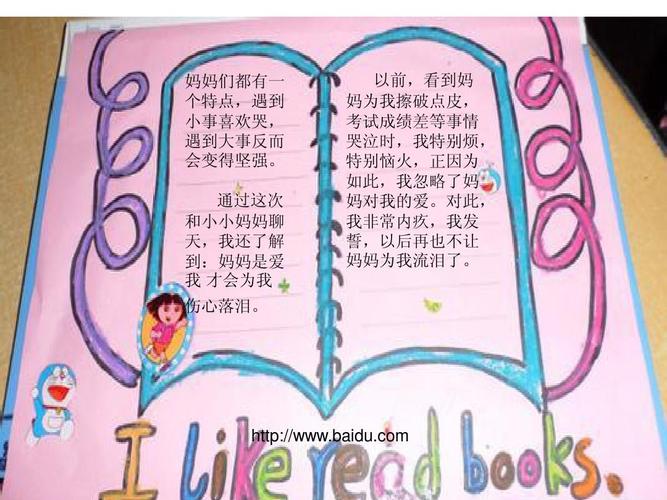 妈妈们都有一
个特点，遇到
小事喜欢哭，
遇到大事反而
会变得坚强。
通过这次
和小小妈妈聊
天，我还了解
到：妈妈是爱
我 才会为我
伤心落泪。
以前，看到妈
妈为我擦破点皮，
考试成绩差等事情
哭泣时，我特别烦，
特别恼火，正因为
如此，我忽略了妈
妈对我的爱。对此，
我非常内疚，我发
誓，以后再也不让
妈妈为我流泪了。
http://www.baidu.com
I like read books.